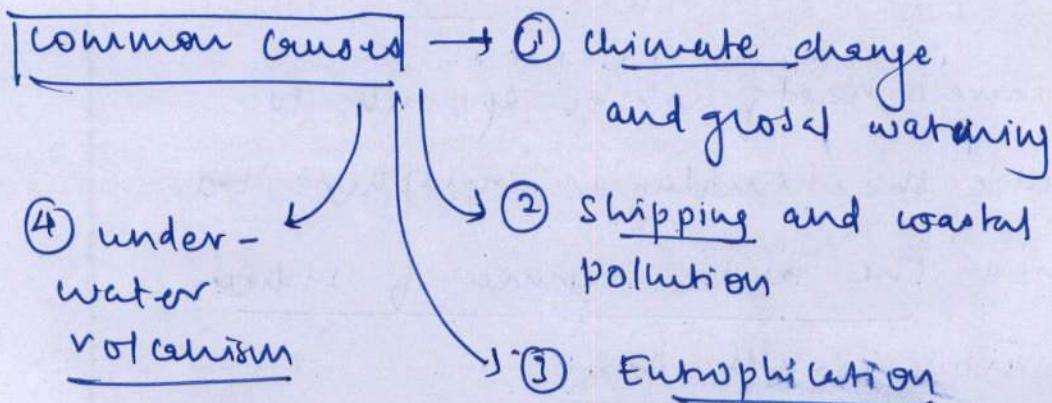 common causes → ① climate change
and global warming
② shipping and coastal
pollution
③ Eutrophication
④ under-
water
volcanism